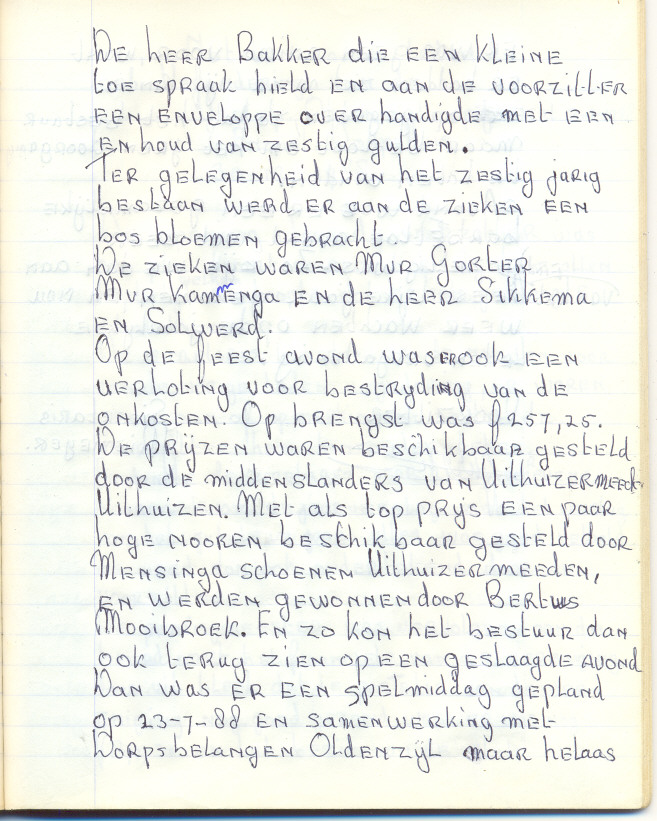 De heer Bakker die een kleine
toe spraak hield en aan de voorzitter
een enveloppe over handigde met een
enhoud van zestig gulden.
Ter gelegenheid van het zestig jarig
bestaan werd er aan de zieken een
bos bloemen gebracht
De zieken waren Mvr Gorter
Mvr Kamminga en de heer Sikkema
en Solwerd.
Op de feest avond was er ook een
verloting voor bestryding van de
onkosten. Op brengst was f 257,25.
De prijzen waren beschikbaar gesteld
door de middenstanders van Uithuizermeed.
Uithuizen. Met als top prys een paar
hoge nooren beschikbaar gesteld door
Mensinga schoenen Uithuizermeeden,
en werden gewonnen door Bertus
Mooibroek. En zo kon het bestuur dan
ook terug zien op een geslaagde avond
Dan was er een spelmiddag gepland
op 23-7-88 en samenwerking met
Dorpsbelangen Oldenzijl maar helaas